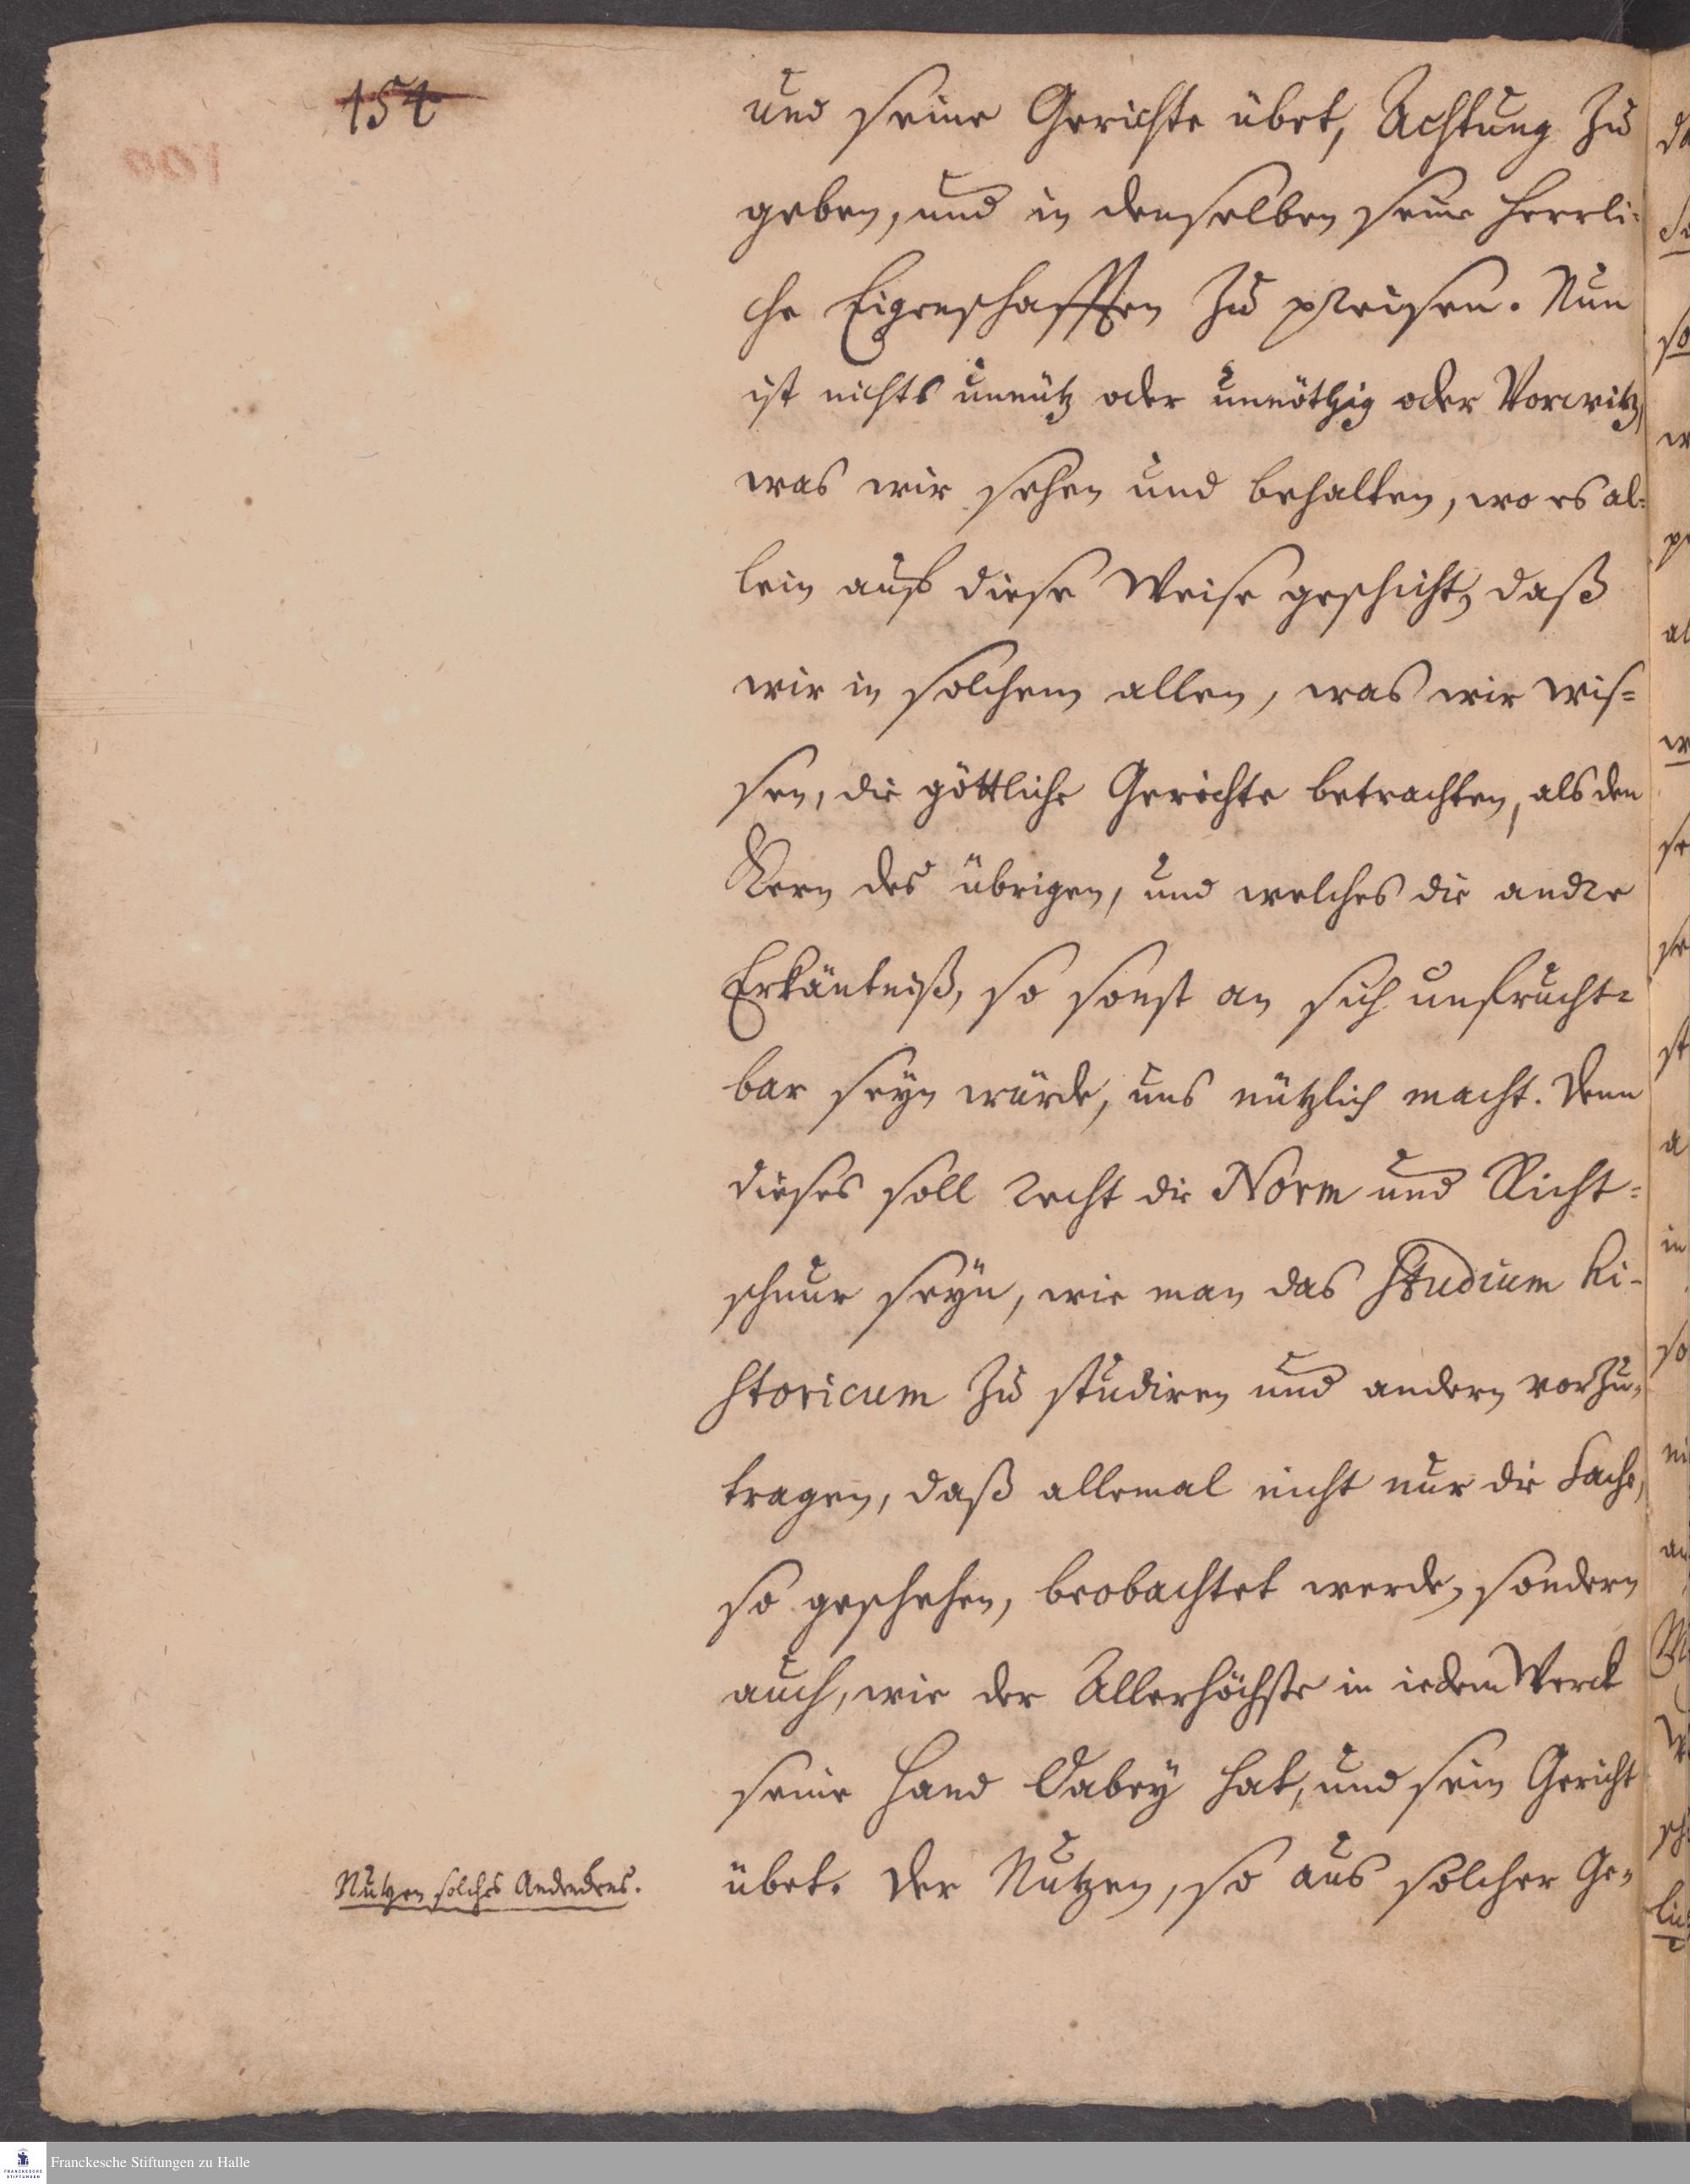 154
und seine Gerichte übet, Achtung zu
geben, und in denselben seine herrli-
che Eigenschafften zu preisen. Nun
ist nichts unnütz oder unnöthig oder Vorwitz,
was wir sehen und behalten, wo es al-
lein auf diese Weise geschicht, daß
wir in solchem allen, was wir wis-
sen, die göttliche Gerichte betrachten, als den
Kern des übrigen, und welches die andre
Erkäntniß, so sonst an sich unfrucht-
bar seyn würde, uns nützlich macht. Denn
dieses soll recht die Norm und Richt-
schnur seyn, wie man das Studium hi-
storicum zu studiren und andern vorzu-
tragen, daß allemal nicht nur die Sache,
so geschehen, beobachtet werde, sondern
auch, wie der Allerhöchste in iedem Werck
seine Hand dabey hat, und sein Gericht
übet. Der Nutzen, so aus solcher Ge-
Nutzen solches
Franckesche Stiftungen zu Halle